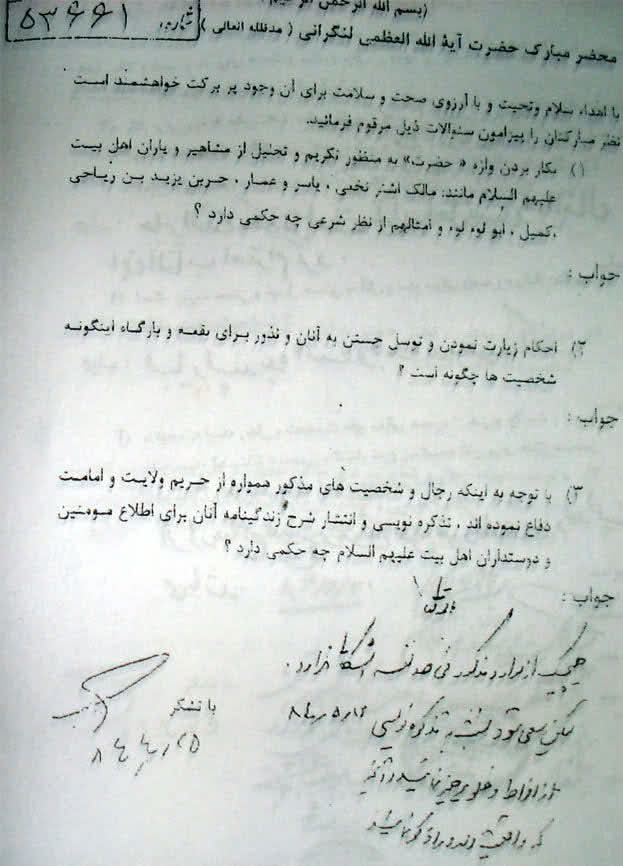 (بسم الله الرحمن الرحیم)
شماره ۵۳۶۶۱
محضر مبارک حضرت آیة الله العظمی لنکرانی ( مدظلله العالی )
با اهداء سلام وتحیت و با آرزوی صحت و سلامت برای آن وجود پر برکت خواهشمند است
نظر مبارکتان را پیرامون سئوالات ذیل مرقوم فرمائید.
۱) بکار بردن واژه « حضرت» به منظور تکریم و تجلیل از مشاهیر و یاران اهل بیت
علیهم السلام مانند: مالک اشتر نخعی ، یاسر و عمار ، حربن یزید بن ریاحی
،کمیل ، ابو لوء لوء و امثالهم از نظر شرعی چه حکمی دارد ؟
جواب :
۲) احکام زیارت نمودن و توسل جستن به آنان و نذور برای بقعه و بارگاه اینگونه
شخصیت ها چگونه است ؟
جواب :
۳) با توجه به اینکه رجال و شخصیت های مذکور همواره از حریم ولایت و امامت
دفاع نموده اند ، تذکره نویسی و انتشار شرح زندگینامه آنان برای اطلاع مومنین
و دوستداران اهل بیت علیهم السلام چه حکمی دارد ؟
جواب :
هیچیک از موارد مذکور فی حد نفسه اشکال ندارد .
با تشکر
لکن سعی شود نسبت به تذکره نویسی
از افراط و غلو پرهیز نمائید و
که واقعیت